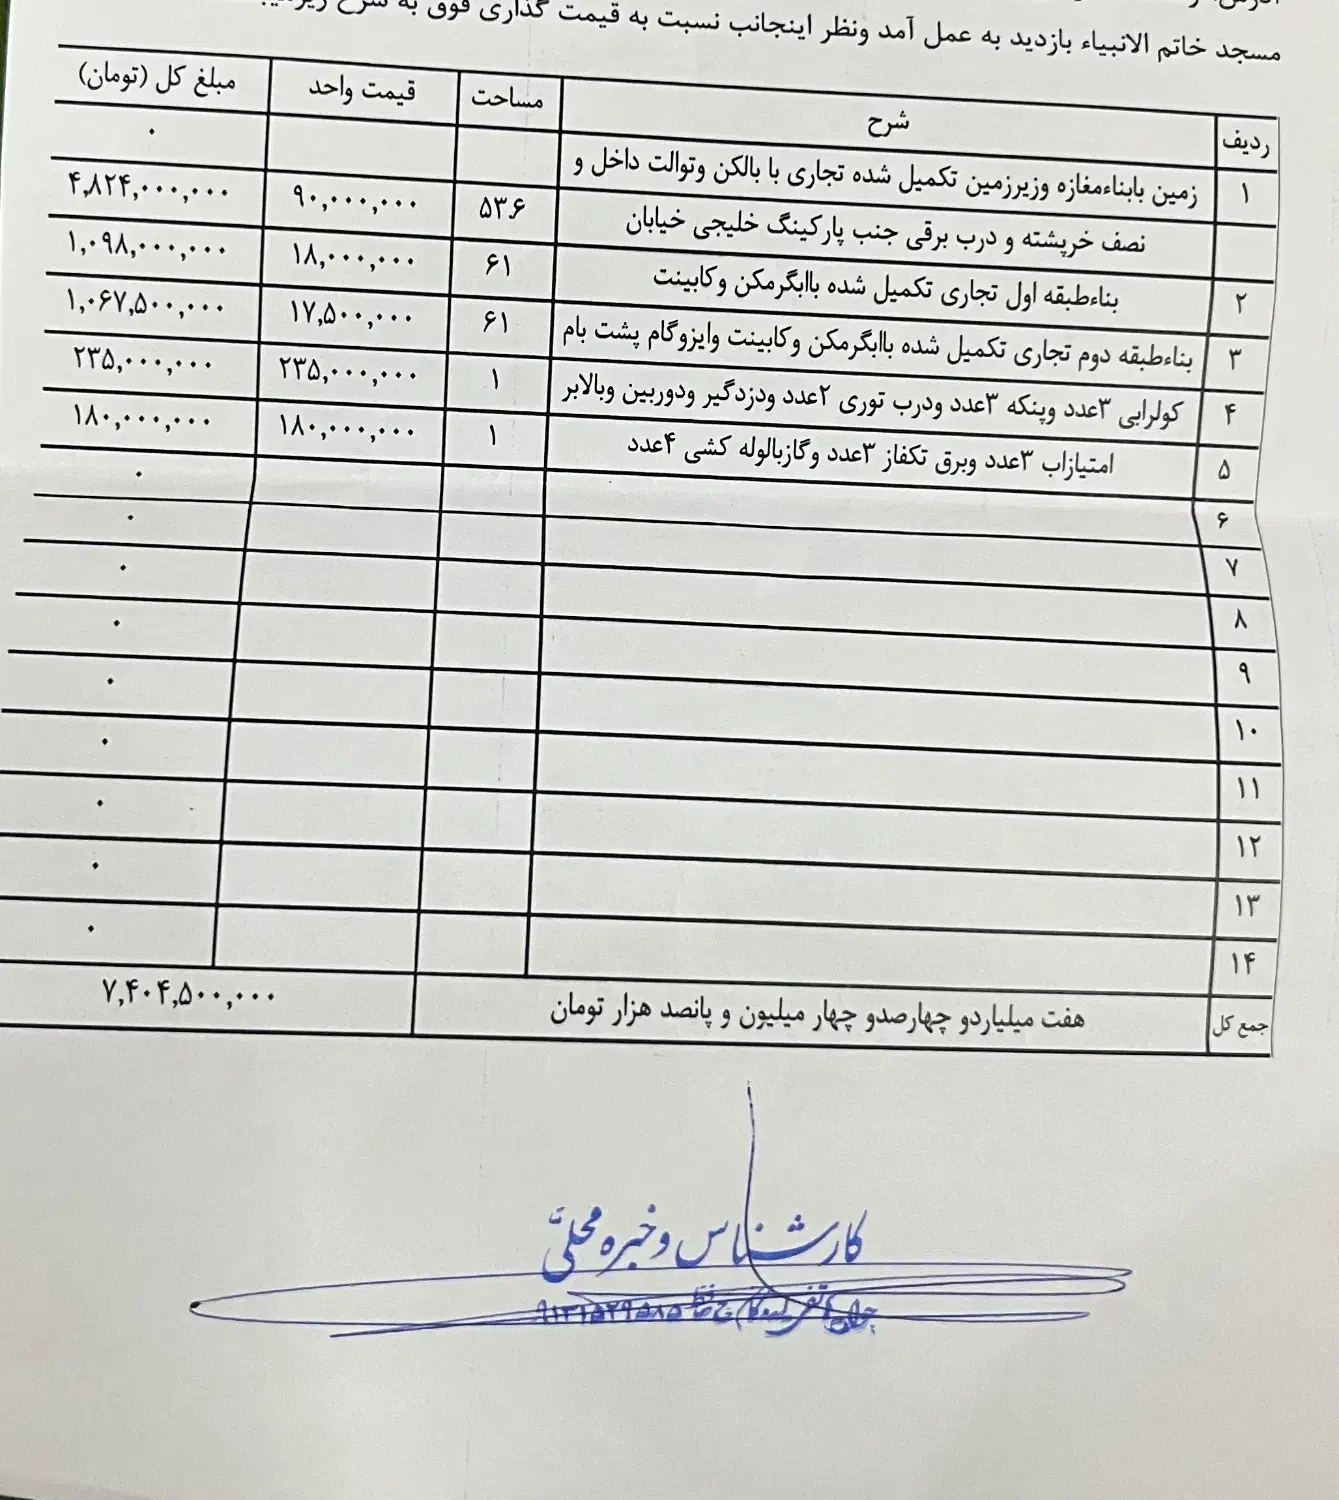 مسجد خاتم الانبیاء بازدید به عمل آمد ونظر اینجانب نسبت به قیمت گذاری فوق به شرح
ردیف شرح مساحت قیمت واحد مبلغ کل (تومان)
۱ زمین بابناءمغازه وزیرزمین تکمیل شده تجاری با بالکن وتوالت داخل و ۰
نصف خرپشته و درب برقی جنب پارکینگ خلیجی خیابان ۵۳.۶ ۹۰,۰۰۰,۰۰۰ ۴,۸۲۴,۰۰۰,۰۰۰
۲ بناءطبقه اول تجاری تکمیل شده باابگرمکن وکابینت ۶۱ ۱۸,۰۰۰,۰۰۰ ۱,۰۹۸,۰۰۰,۰۰۰
۳ بناءطبقه دوم تجاری تکمیل شده باابگرمکن وکابینت وایزوگام پشت بام ۶۱ ۱۷,۵۰۰,۰۰۰ ۱,۰۶۷,۵۰۰,۰۰۰
۴ کولرابی ۳عدد وپنکه ۳عدد ودرب توری ۲عدد ودزدگیر ودوربین وبالابر ۱ ۲۳۵,۰۰۰,۰۰۰ ۲۳۵,۰۰۰,۰۰۰
۵ امتیازاب ۳عدد وبرق تکفاز ۳عدد وگازبالوله کشی ۴عدد ۱ ۱۸۰,۰۰۰,۰۰۰ ۱۸۰,۰۰۰,۰۰۰
۶ ۰
۷ ۰
۸ ۰
۹ ۰
۱۰ ۰
۱۱ ۰
۱۲ ۰
۱۳ ۰
۱۴ ۰
جمع کل هفت میلیاردو چهارصدو چهار میلیون و پانصد هزار تومان ۷,۴۰۴,۵۰۰,۰۰۰
کارشناس و خبره محلی